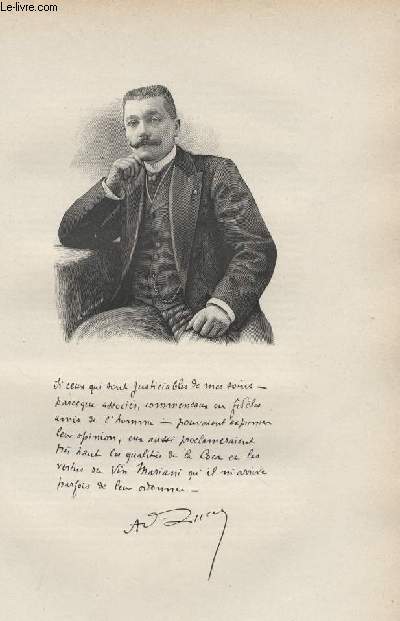 Le-livre.com
Si ceux qui sont justiciables de mes soins —
parceque associés, commensaux ou fidèles
amis de l'homme — pouvaient exprimer
leur opinion, eux aussi proclameraient
très haut les qualités de la Coca et les
vertus du Vin Mariani qu'il m'arrive
parfois de leur ordonner —
Ad